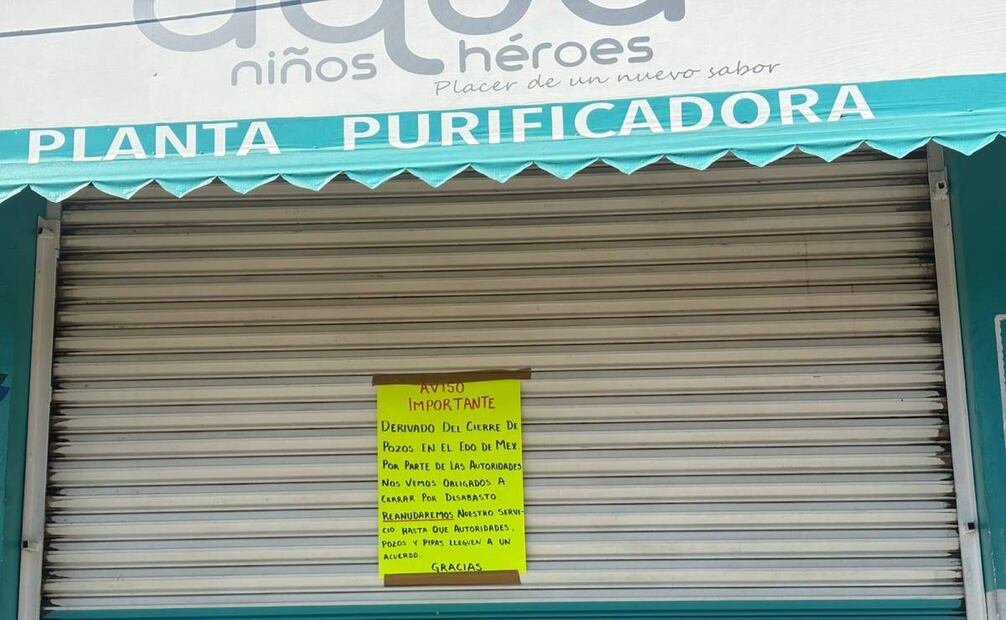 aqua
niños héroes
Placer de un nuevo sabor
PLANTA PURIFICADORA
AVISO
IMPORTANTE
DERIVADO DEL CIERRE DE
POZOS EN EL EDO DE MEX
POR PARTE DE LAS AUTORIDADES
NOS VEMOS OBLIGADOS A
CERRAR POR DESABASTO
REANUDAREMOS NUESTRO SERVI-
CIO HASTA QUE AUTORIDADES,
POZOS Y PIPAS LLEGUEN A UN
ACUERDO.
GRACIAS